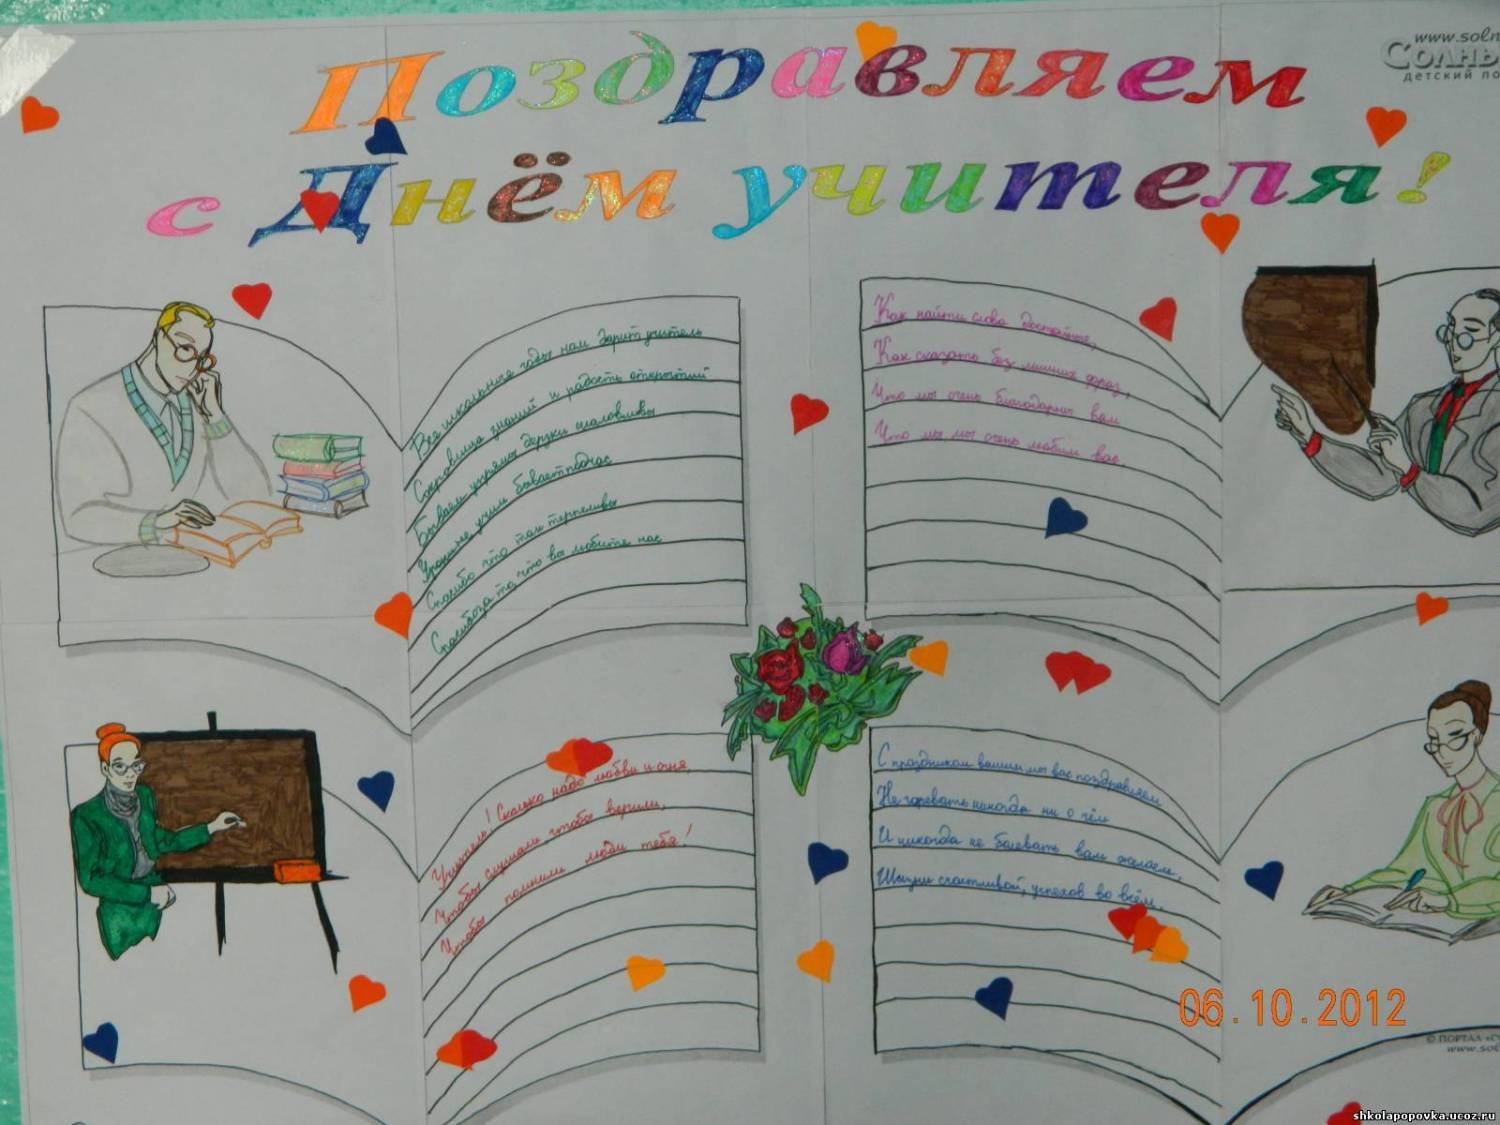 Поздравляем
с Днём учителя!
www.soln
Солны
детский по
Все школьные годы нам дарит учитель
Сокровища знаний и радость открытий
Бываем упрямы друзья шаловливы
Уроки не учим бывает подчас
Спасибо что так терпеливы
Спасибо за то, что вы любите нас
Как найти слова достойные,
Как сказать без лишних фраз,
Что мы очень благодарны вам
Что мы мы очень любим вас.
Учитель! Сколько надо любви и огня,
Чтобы слушали, чтобы верили,
Чтобы помнили люди тебя!
С праздником вашим мы вас поздравляем
Не горевать никогда ни о чём
И никогда не болевать вам желаем,
Жизни счастливой, успехов во всём.
06.10.2012
© ПОРТАЛ «С
www.sol
shkolapopovka.ucoz.ru